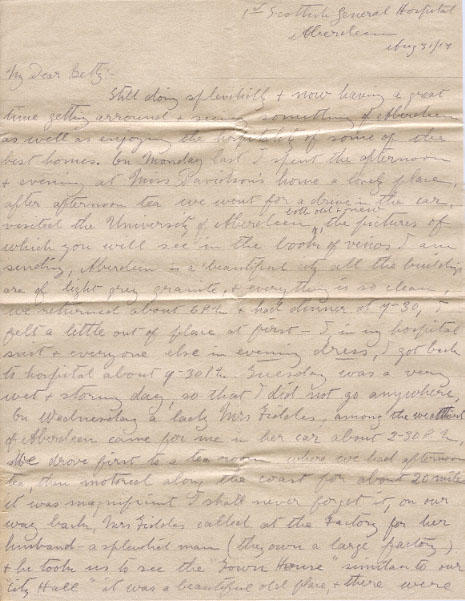 1st Scottish General Hospital
Aberdeen
Aug 31/17
My Dear Betty:-
Still doing splendidly & now having a great
time getting arround & seeing something of Aberdeen
as well as enjoying the hospitality of some of the
best homes. On Monday last I spent the afternoon
& evening at Miss Davidson's home a lovely place,
after afternoon tea we went for a drive in the car,
visited the University of Aberdeen, both old & new, the pictures of
which you will see in the book of views I am
sending, Aberdeen is a beautiful city all the buildings
are of light grey granite, & everything is so clean,
we returned about 6 P.M. & had dinner at 7-30, I
felt a little out of place at first - I in my hospital
suit & everyone else in evening dress, I got back
to hospital about 9-30 P.M. Tuesday was a very
wet & stormy day, so that I did not go anywhere,
On Wednesday a lady Mrs Fiddes, among the wealthiest
of Aberdeen came for me in her car about 2-30 P.M,
We drove first to a tea room where we had afternoon
tea, then motored along the coast for about 20 miles
it was magnifient I shall never forget it, on our
way back, Mrs Fiddes called at the Factory for her
husband - a splendid man (they own a large factory)
& he took us to see the "Town House" similar to our
"City Hall" it was a beautiful old place, & there were